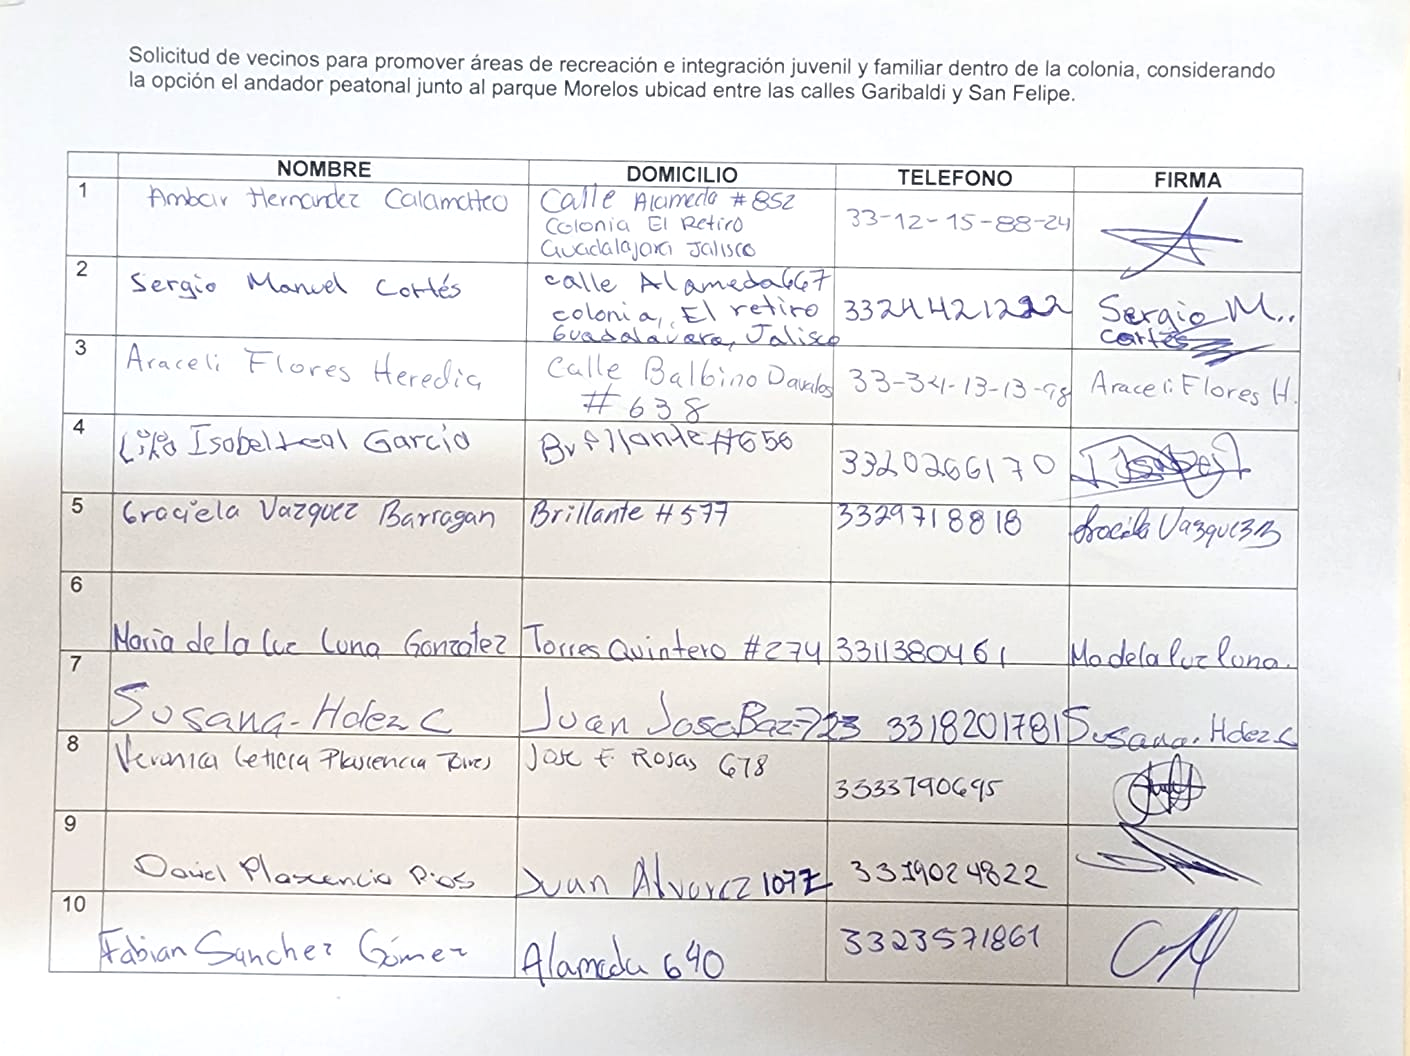 Solicitud de vecinos para promover áreas de recreación e integración juvenil y familiar dentro de la colonia, considerando
la opción el andador peatonal junto al parque Morelos ubicad entre las calles Garibaldi y San Felipe.
NOMBRE DOMICILIO TELEFONO FIRMA
1 Ambar Hernandez Calamateo Calle Alameda #852 33-12-15-88-24
Colonia El Retiro
Guadalajara Jalisco
2 Sergio Manuel Cortés calle Alameda 667 Sergio M..
colonia, El retiro 3324421222 Cortés
Guadalajara, Jalisco
3 Araceli Flores Heredia Calle Balbino Davalos 33-34-13-13-98 Araceli Flores H.
# 638
4 Isabel Leal Garcia Brillante #656 3320266170 Isabel
5 Graciela Vazquez Barragan Brillante #577 3329718818 Graciela Vazquez B
6 Maria de la Luz Luna Gonzalez Torres Quintero #274 3311380461 Ma de la luz luna.
7 Susana. Hdez C Juan Jose Baz 723 3318201781 Susana. Hdez C
8 Veronica Leticia Plascencia Torres Jose F. Rosas 678 3333790695
9 David Plascencia Rios Juan Alvarez 1077 3319024822
10 Fabian Sanchez Gómez Alameda 640 3323571861